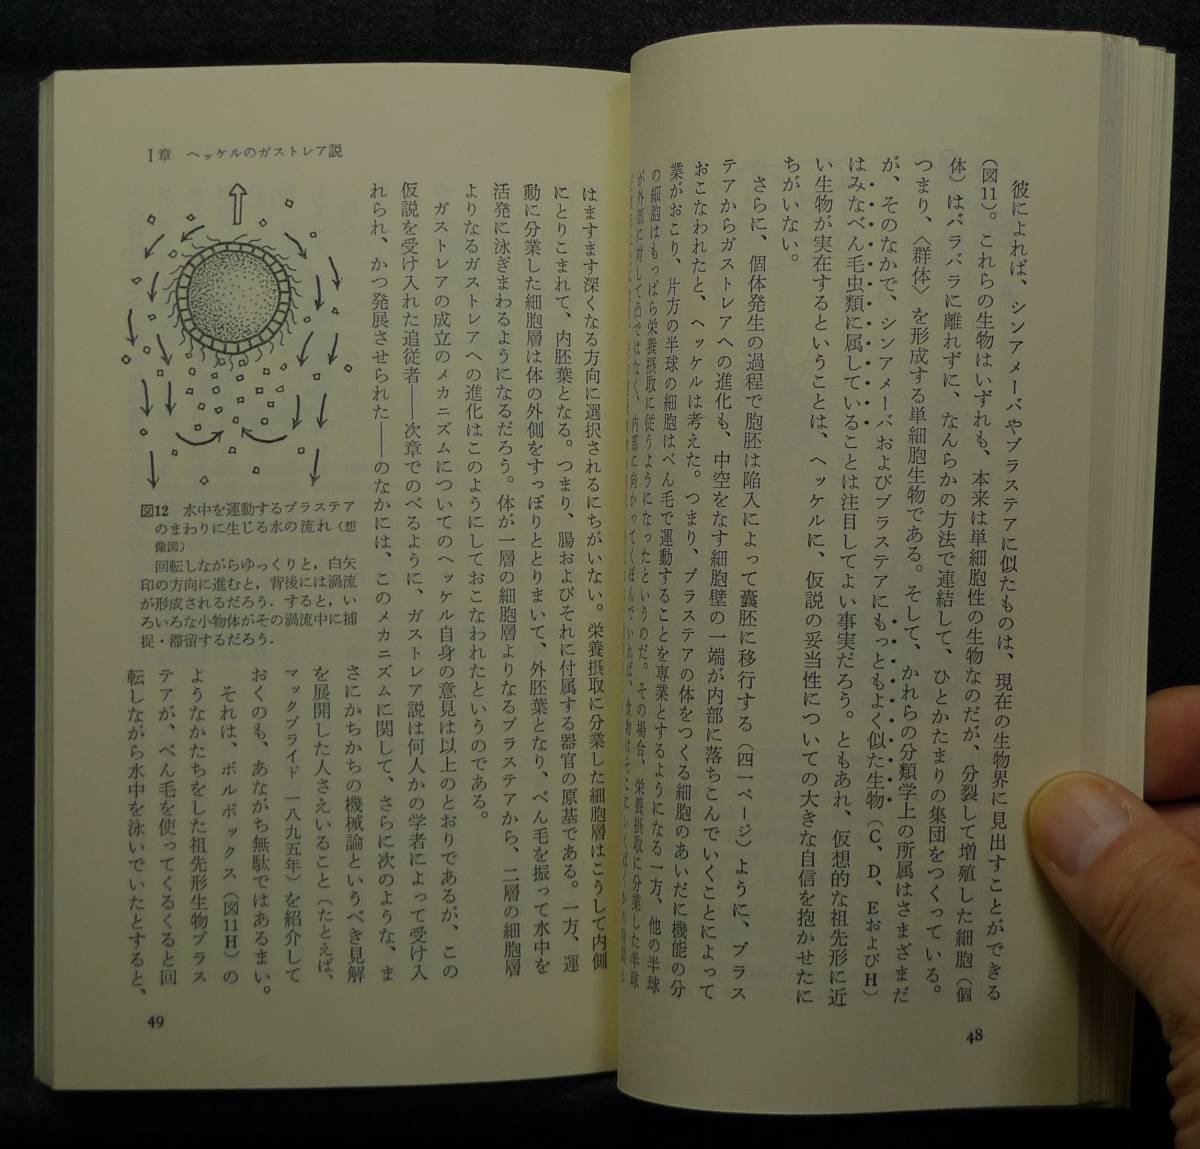 彼によれば、シンアメーバやプラステアに似たものは、現在の生物界に見出すことができる
(図11)。これらの生物はいずれも、本来は単細胞性の生物なのだが、分裂して増殖した細胞(個
体)はバラバラに離れずに、なんらかの方法で連結して、ひとかたまりの集団をつくっている。
つまり、〈群体〉を形成する単細胞生物である。そして、かれらの分類学上の所属はさまざまだ
が、そのなかで、シンアメーバおよびプラステアにもっともよく似た生物(C、D、EおよびH)
はみなべん毛虫類に属していることは注目してよい事実だろう。ともあれ、仮想的な祖先形に近
い生物が実在するということは、ヘッケルに、仮説の妥当性についての大きな自信を抱かせたに
ちがいない。
さらに、個体発生の過程で胞胚は陥入によって嚢胚に移行する(四一ページ)ように、プラス
テアからガストレアへの進化も、中空をなす細胞壁の一端が内部に落ちこんでいくことによって
おこなわれたと、ヘッケルは考えた。つまり、プラステアの体をつくる細胞のあいだに機能の分
業がおこり、片方の半球の細胞はべん毛で運動することを専業とするようになる一方、他の半球
の細胞はもっぱら栄養摂取に従うようになったというのだ。その場合、栄養摂取に分業した半球
が外部に対して凸ではなく、内部に向かってくぼんでいれば、食物は
48
Ⅰ章 ヘッケルのガストレア説
はますます深くなる方向に選択されるにちがいない。栄養摂取に分業した細胞層はこうして内側
にとりこまれて、内胚葉となる。つまり、腸およびそれに付属する器官の原基である。一方、運
動に分業した細胞層は体の外側をすっぽりととりまいて、外胚葉となり、べん毛を振って水中を
活発に泳ぎまわるようになるだろう。体が一層の細胞層よりなるプラステアから、二層の細胞層
よりなるガストレアへの進化はこのようにしておこなわれたというのである。
ガストレアの成立のメカニズムについてのヘッケル自身の意見は以上のとおりであるが、この
仮説を受け入れた追従者――次章でのべるように、ガストレア説は何人かの学者によって受け入
れられ、かつ発展させられた――のなかには、このメカニズムに関して、さらに次のような、ま
さにかちかちの機械論というべき見解
を展開した人さえいること(たとえば、
マックブライド 一八九五年)を紹介して
おくのも、あながち無駄ではあるまい。
それは、ボルボックス(図11H)の
ようなかたちをした祖先形生物プラス
テアが、べん毛を使ってくるくると回
転しながら水中を泳いでいたとすると、
図12 水中を運動するプラステア
のまわりに生じる水の流れ(想
像図)
回転しながらゆっくりと,白矢
印の方向に進むと,背後には渦流
が形成されるだろう.すると,い
ろいろな小物体がその渦流中に捕
捉・滞留するだろう.
49